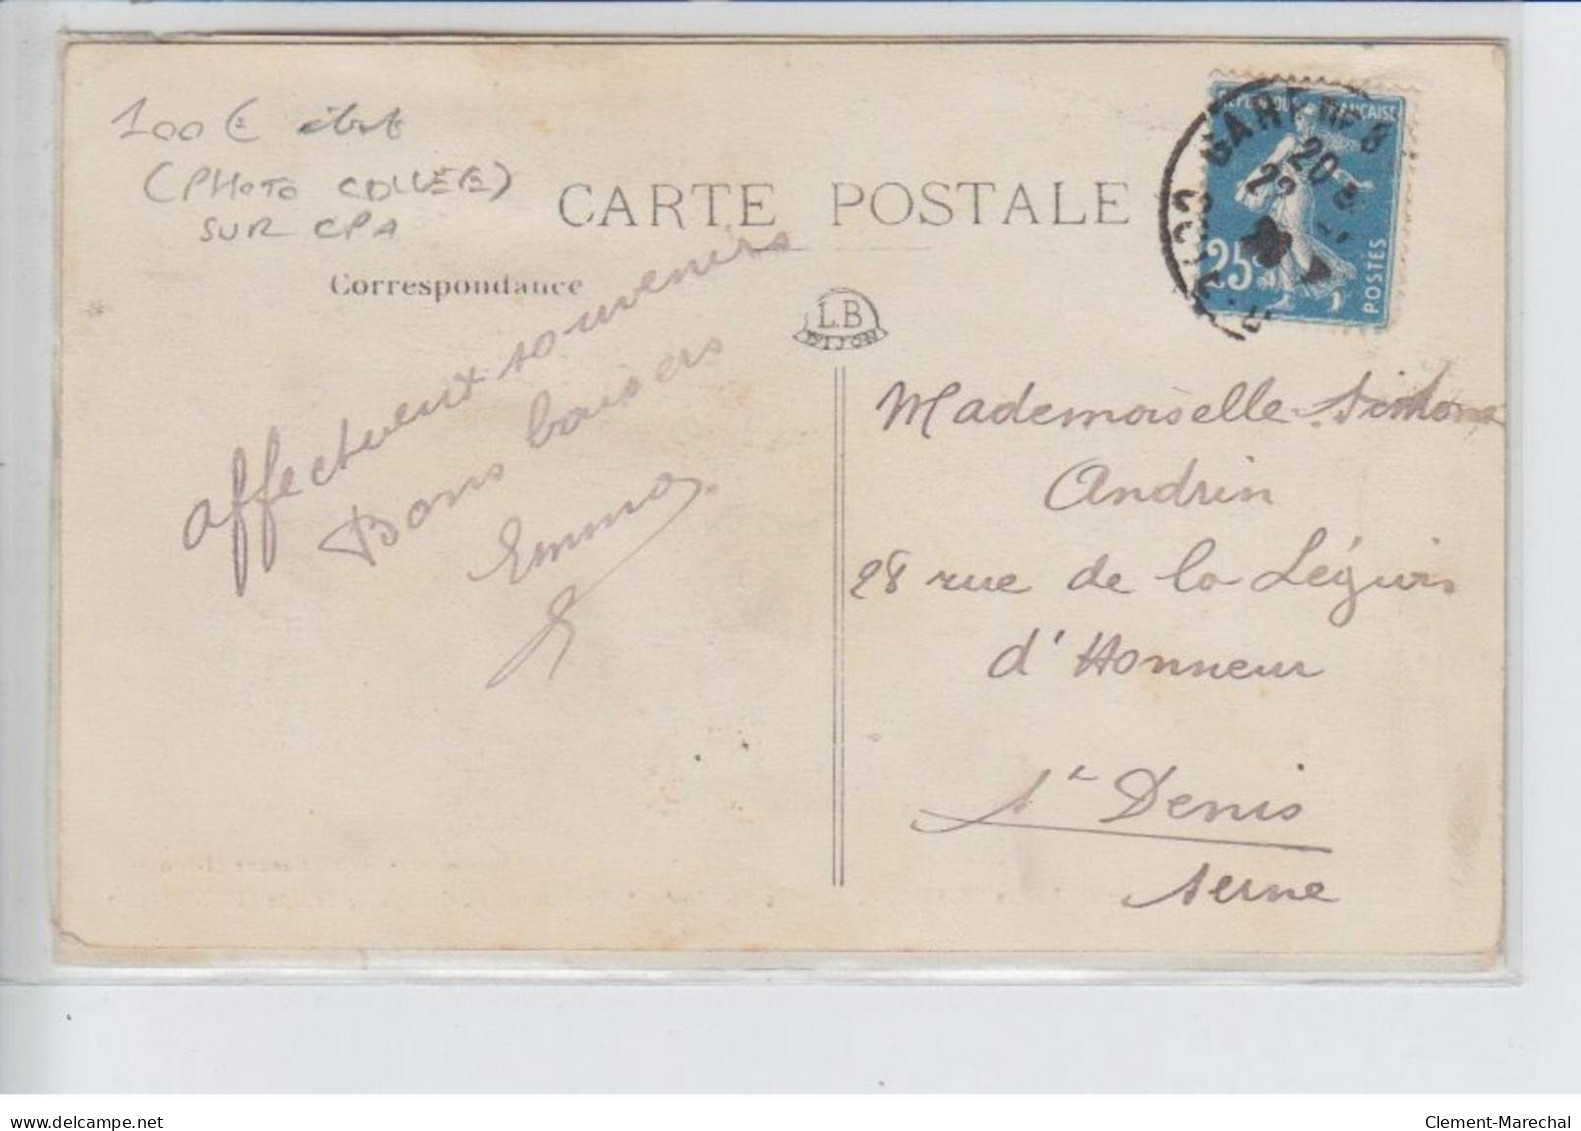 100 € état
(PHOTO COLLÉE)
SUR CPA
CARTE POSTALE
Correspondance
L.B
DIJON
affectueux souvenirs
Bons baisers
Emma
RÉPUBLIQUE FRANÇAISE
25c
POSTES
GARE
20
22
Mademoiselle Simone
Andrin
28 rue de la Légion
d'Honneur
St Denis
Seine
www.delcampe.net
Clement-Marechal